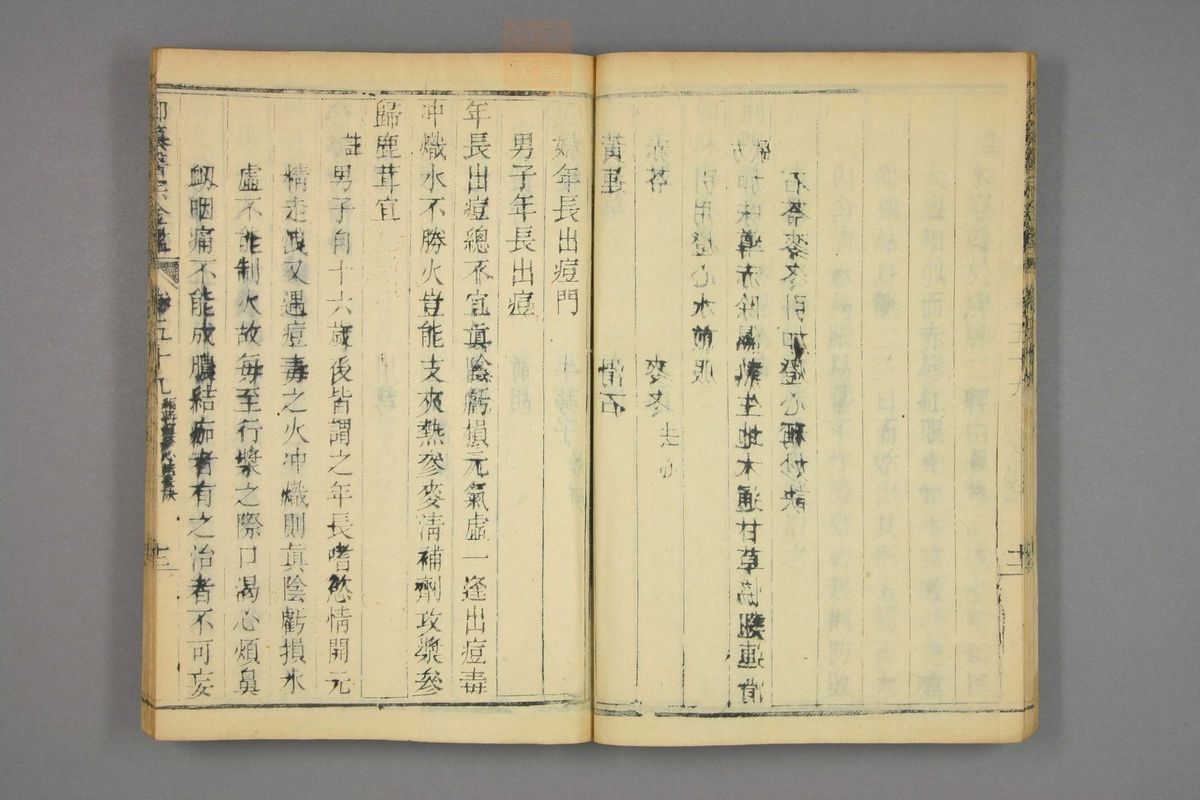 黄連 滑石
赤苓 麥冬去心
引用燈心水煎服
歌加味導赤除濕熱生地木通甘草臨連滑
方石苓麥冬引加燈心稱妙訣
男女年長出痘門
男子年長出痘
年長出痘總不宜眞陰虧損元氣虛一逢出痘毒
冲熾水不勝火豈能支夾熱參麥清補劑攻漿參
歸鹿茸宜
註男子自十六歲後皆謂之年長嗜慾情開元
精走洩又遇痘毒之火冲熾則眞陰虧損水
虛不能制火故每至行漿之際口渴心煩鼻
衂咽痛不能成膿結痂者有之治者不可妄
御纂醫宗金鑑
卷五十九